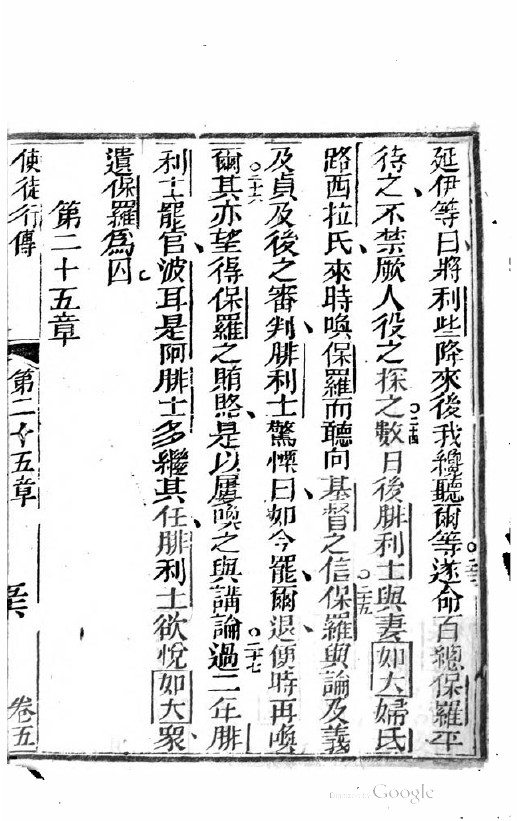 延伊等曰將利些降來後我總聽爾等。二三遂命百總保羅平
待之不禁厥人役之探之。二四數日後腓利士與妻如大婦氏
路西拉氏來時喚保羅而聽向基督之信。二五保羅與論及義
及貞及後之審判腓利士驚慄曰如今罷爾退便時再喚
爾。二六其亦望得保羅之賄賂是以屢喚之與講論。二十七過二年腓
利士罷官波耳是阿腓士多繼其任腓利士欲悅如大衆
遺保羅為囚
第二十五章
使徒行傳 第二十五章 卷五
Google